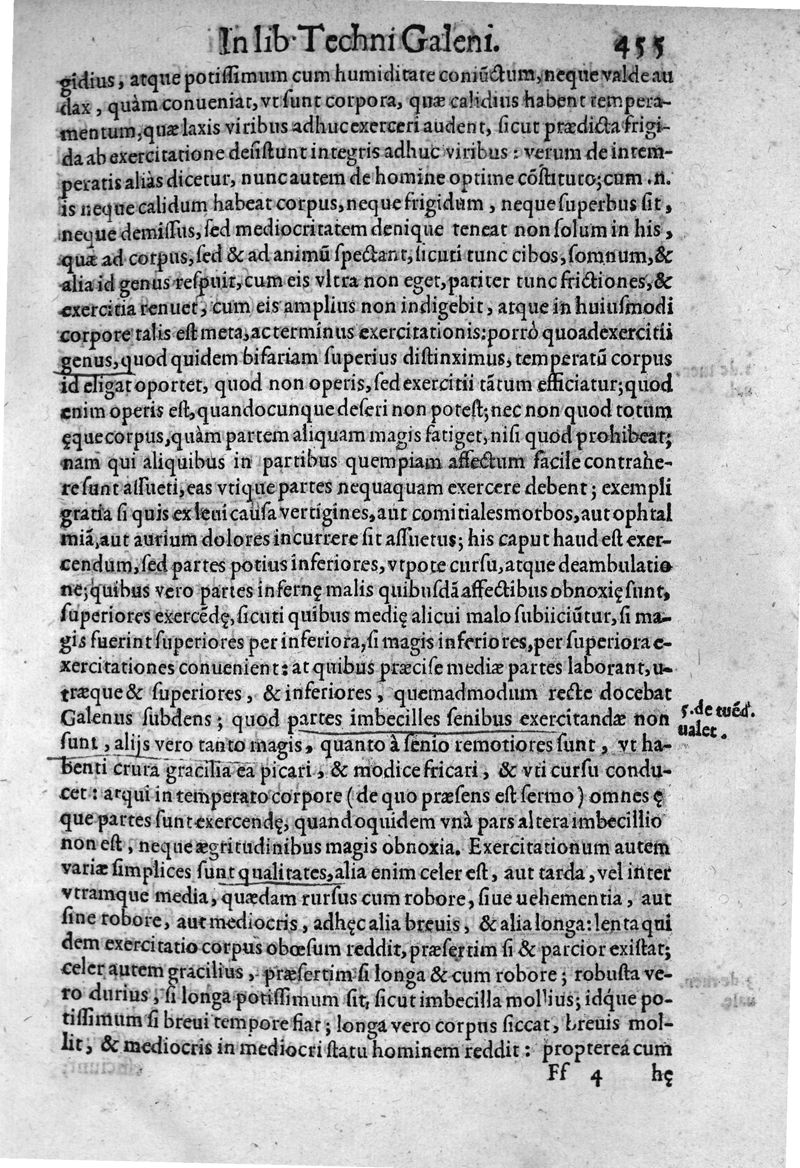 In lib. Techni Galeni. 455
gidius, atque potissimum cum humiditate coniũctum, neque valde au
dax, quàm conueniat, vt sunt corpora, quæ calidius habent tempera-
mentum, quæ laxis viribus adhuc exerceri audent, sicut prædicta frigi-
da ab exercitatione desistunt integris adhuc viribus: verum de intem-
peratis aliàs dicetur, nunc autem de homine optime cõstituto; cum .n.
is neque calidum habeat corpus, neque frigidum, neque superbus sit,
neque demissus, sed mediocritatem denique teneat non solum in his,
quæ ad corpus, sed & ad animũ spectant, sicuti tunc cibos, somnum, &
alia id genus respuit, cum eis vltra non eget, pariter tunc frictiones, &
exercitia renuet, cum eis amplius non indigebit, atque in huiusmodi
corpore talis est meta, ac terminus exercitationis: porrò quoad exercitii
genus, quod quidem bifariam superius distinximus, temperatũ corpus
id eligat oportet, quod non operis, sed exercitii tãtum efficiatur; quod
enim operis est, quandocunque deseri non potest; nec non quod totum
ęque corpus, quàm partem aliquam magis fatiget, nisi quod prohibeat;
nam qui aliquibus in partibus quempiam affectum facile contrahe-
re sunt assueti, eas vtique partes nequaquam exercere debent; exempli
gratia si quis ex leui causa vertigines, aut comitiales morbos, aut ophtal
miã, aut aurium dolores incurrere sit assuetus; his caput haud est exer-
cendum, sed partes potius inferiores, vtpote cursu, atque deambulatio
ne; quibus vero partes infernę malis quibusdã affectibus obnoxię sunt,
superiores exercẽdę, sicuti quibus medię alicui malo subiiciũtur, si ma-
gis fuerint superiores per inferiora, si magis inferiores, per superiora e-
xercitationes conuenient: at quibus præcise mediæ partes laborant, u-
træque & superiores, & inferiores, quemadmodum recte docebat
Galenus subdens; quod partes imbecilles senibus exercitandæ non
5. de tuẽd.
ualet.
sunt, alijs vero tanto magis, quanto à senio remotiores sunt, vt ha-
benti crura gracilia ea picari, & modice fricari, & vti cursu condu-
cet: atqui in temperato corpore (de quo præsens est sermo) omnes ę
que partes sunt exercendę, quandoquidem vnà pars altera imbecillio
non est, neque ægritudinibus magis obnoxia. Exercitationum autem
variæ simplices sunt qualitates, alia enim celer est, aut tarda, vel inter
vtramque media, quædam rursus cum robore, siue uehementia, aut
sine robore, aut mediocris, adhęc alia breuis, & alia longa: lenta qui
dem exercitatio corpus obœsum reddit, præsertim si & parcior existat;
celer autem gracilius, præsertim si longa & cum robore; robusta ve-
ro durius, si longa potissimum sit, sicut imbecilla mollius; idq́ue po-
tissimum si breui tempore fiat; longa vero corpus siccat, breuis mol-
lit, & mediocris in mediocri statu hominem reddit: propterea cum
Ff 4 hę